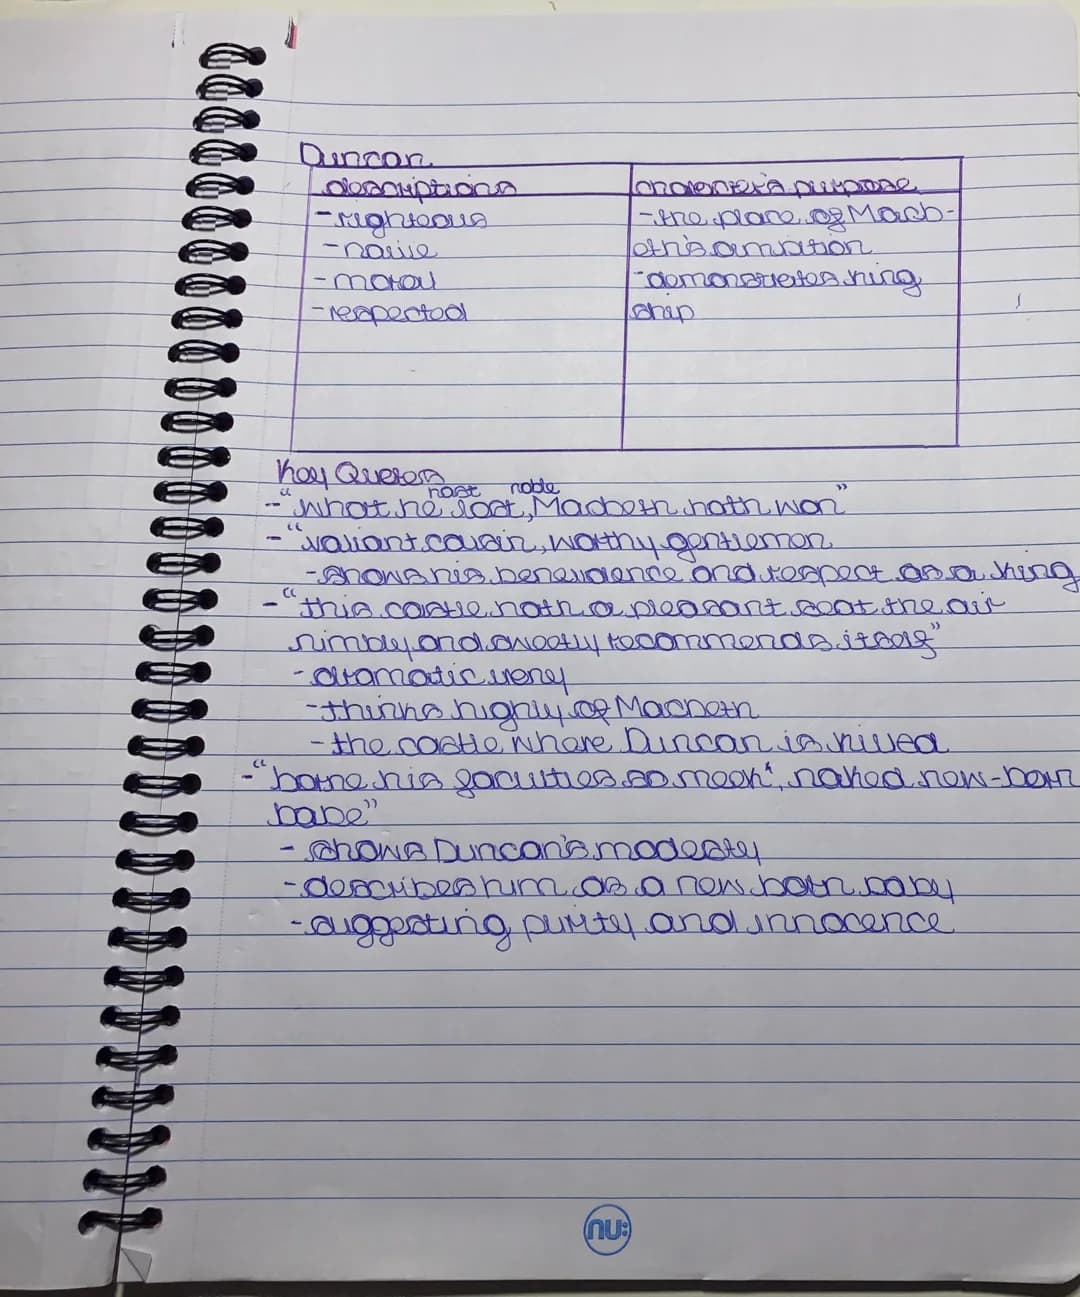 Duncan
descriptions character's purpose
-righteous -the place of Macb-
-naive eth's ambition
-moral -demonstrates king
-respected ship
Key Quotes
hath noble
-"what he lost, Macbeth hath won"
-"valiant cousin, worthy gentleman
-shows his benevolence and respect as a king
-"this castle hath a pleasant seat the air
nimbly and sweetly recommends itself"
-dramatic irony
-thinks highly of Macbeth
-the castle where Duncan is killed
-"borne his faculties so meek", naked new-born
babe"
- shows Duncan's modesty
-describes him as a new born baby
-suggesting purity and innocence
nu: